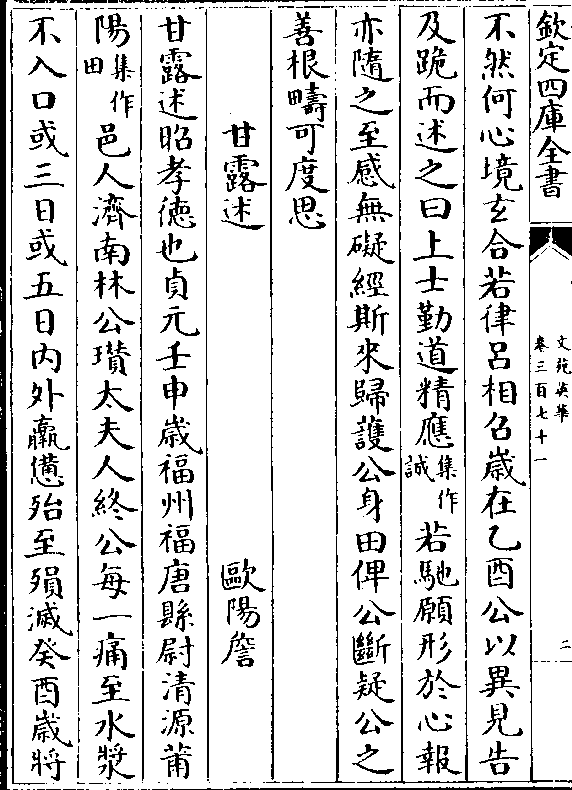 欽定四庫全書
文苑英華
卷三百七十一
二
不然何心境玄合若律呂相召歲在乙酉公以異見告
及跪而述之曰上士勤道精應集作誠若馳願形於心報
亦隨之至感無礙經斯來歸護公身田俾公斷疑公之
善根疇可度思
甘露述 歐陽詹
甘露述昭孝德也貞元壬申歲福州福唐縣尉清源莆
陽集作田邑人濟南林公瓚太夫人終公每一痛至水漿
不入口或三日或五日内外羸憊殆至殞滅癸酉歲將